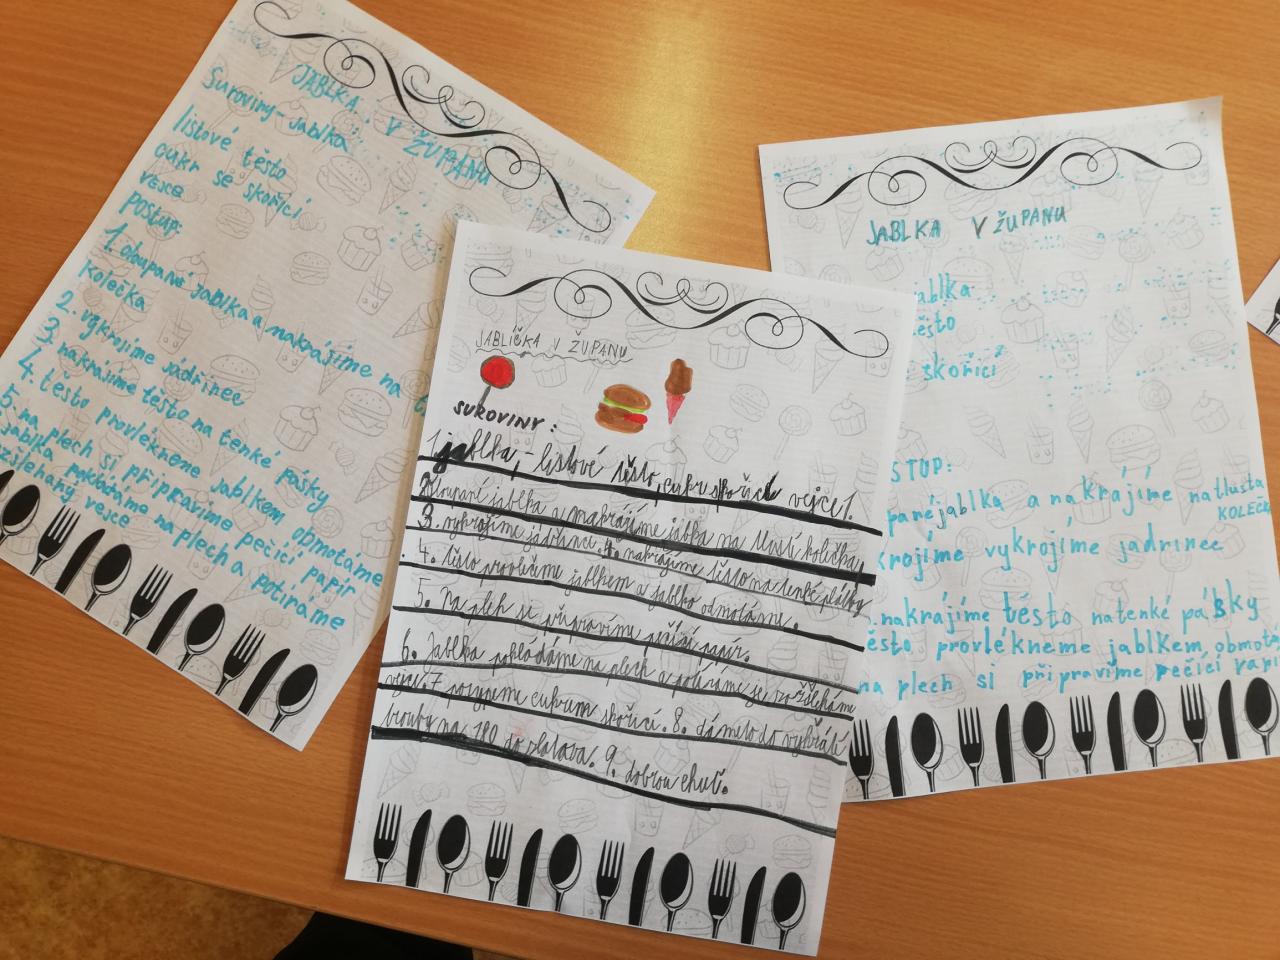 JABLKA V ŽUPANU
Suroviny - jablka
listové těsto
cukr se skořicí
vejce
Postup:
1. oloupané jablka a nakrájíme na
kolečka
2. vykrojíme jádřinec
3. nakrájíme těsto na tenké pásky
4. těsto provlékneme jablkem obmotáme
5. na plech si připravíme pečící papír
jablka pokládáme na plech a potíráme
vejce
JABLÍČKA V ŽUPANU
SUROVINY:
1. jablka, - listové těsto, cukr skořice vejce 1.
2. oloupané jablka a nakrájíme jabka na tlustí kolečka
3. vykrojíme jadřinec. 4. nakrájíme těsto na tenké plátky
4. těsto provlečíme jablkem a jablko odmotáme.
5. Na pleh si připravíme pečící papír.
6. Jablka pokládáme na plech a potíráme je
vejcí. 7 posypeme cukrem skořicí. 8. dáme to do vyhřátí
trouby na 180 do zlatava. 9. dobrou chuť.
JABLKA V ŽUPANU
jablka
těsto
skořicí
STUP:
pané jablka a nakrájíme na tlusta
KOLEČK
krojíme vykrojíme jadrinec
. nakrájíme těsto na tenké pásky
ěsto provlékneme jablkem, obmotá
na plech si připravíme pečící papí